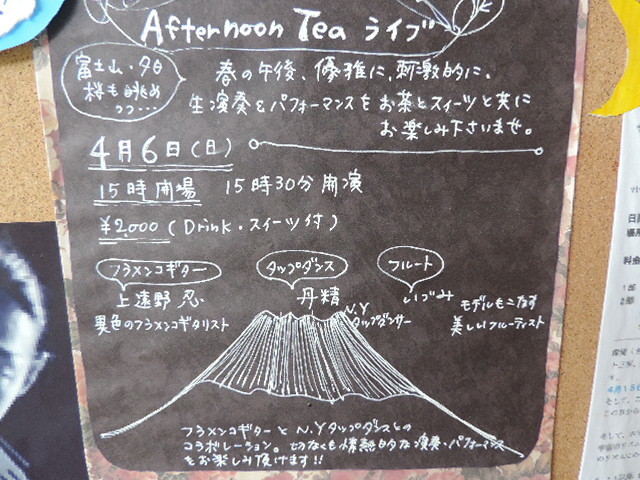 Afternoon Tea ライブ
富士山・夕日
桜も眺め
つつ・・・
春の午後、優雅に、刺激的に。
生演奏&パフォーマンスをお茶とスイーツと共に
お楽しみ下さいませ。
4月6日(日)
15時開場 15時30分開演
¥2,000(Drink・スイーツ付)
フラメンコギター
上遠野 忍
異色のフラメンコギタリスト
タップダンス
丹精
N.Y
タップダンサー
フルート
いづみ
モデルもこなす
美しいフルーティスト
フラメンコギターとN.Yタップダンスとの
コラボレーション。切なくも情熱的な演奏・パフォーマンス
をお楽しみ頂けます!!
料金
4月15